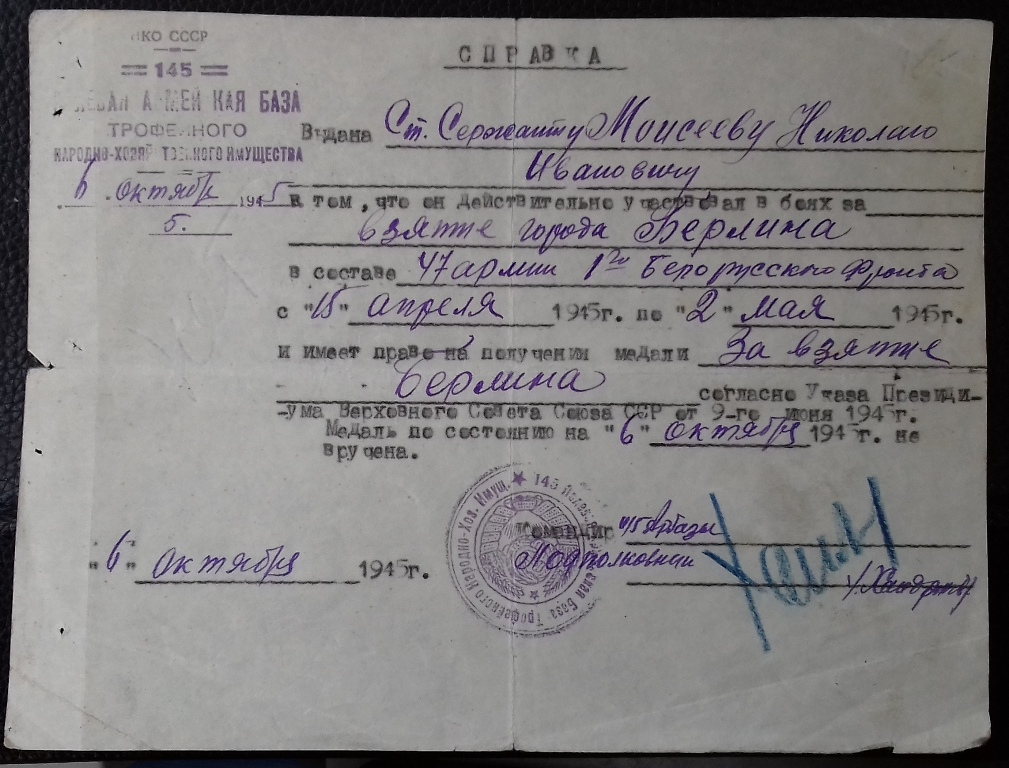 НКО СССР
145
ПОЛЕВАЯ АРМЕЙСКАЯ БАЗА
ТРОФЕЙНОГО
НАРОДНО-ХОЗЯЙСТВЕННОГО ИМУЩЕСТВА
6 октября 1945
5.
СПРАВКА
Выдана Ст. Сержанту Моисееву Николаю
Ивановичу
в том, что он действительно участвовал в боях за
взятие города Берлина
в составе 47 армии 1го Белорусского фронта
с "15" апреля 1945г. по "2" мая 1945г.
и имеет право на получения медали За взятие
Берлина
согласно Указа Президи-
-ума Верховного Совета Союза ССР от 9-го июня 1945г.
Медаль по состоянию на "6" октября 1945г. не
вручена.
Командир 145
Подполковник
"6" октября 1945г.
145 Полевая Армейская База Трофейного Народно-Хоз. Имущ.